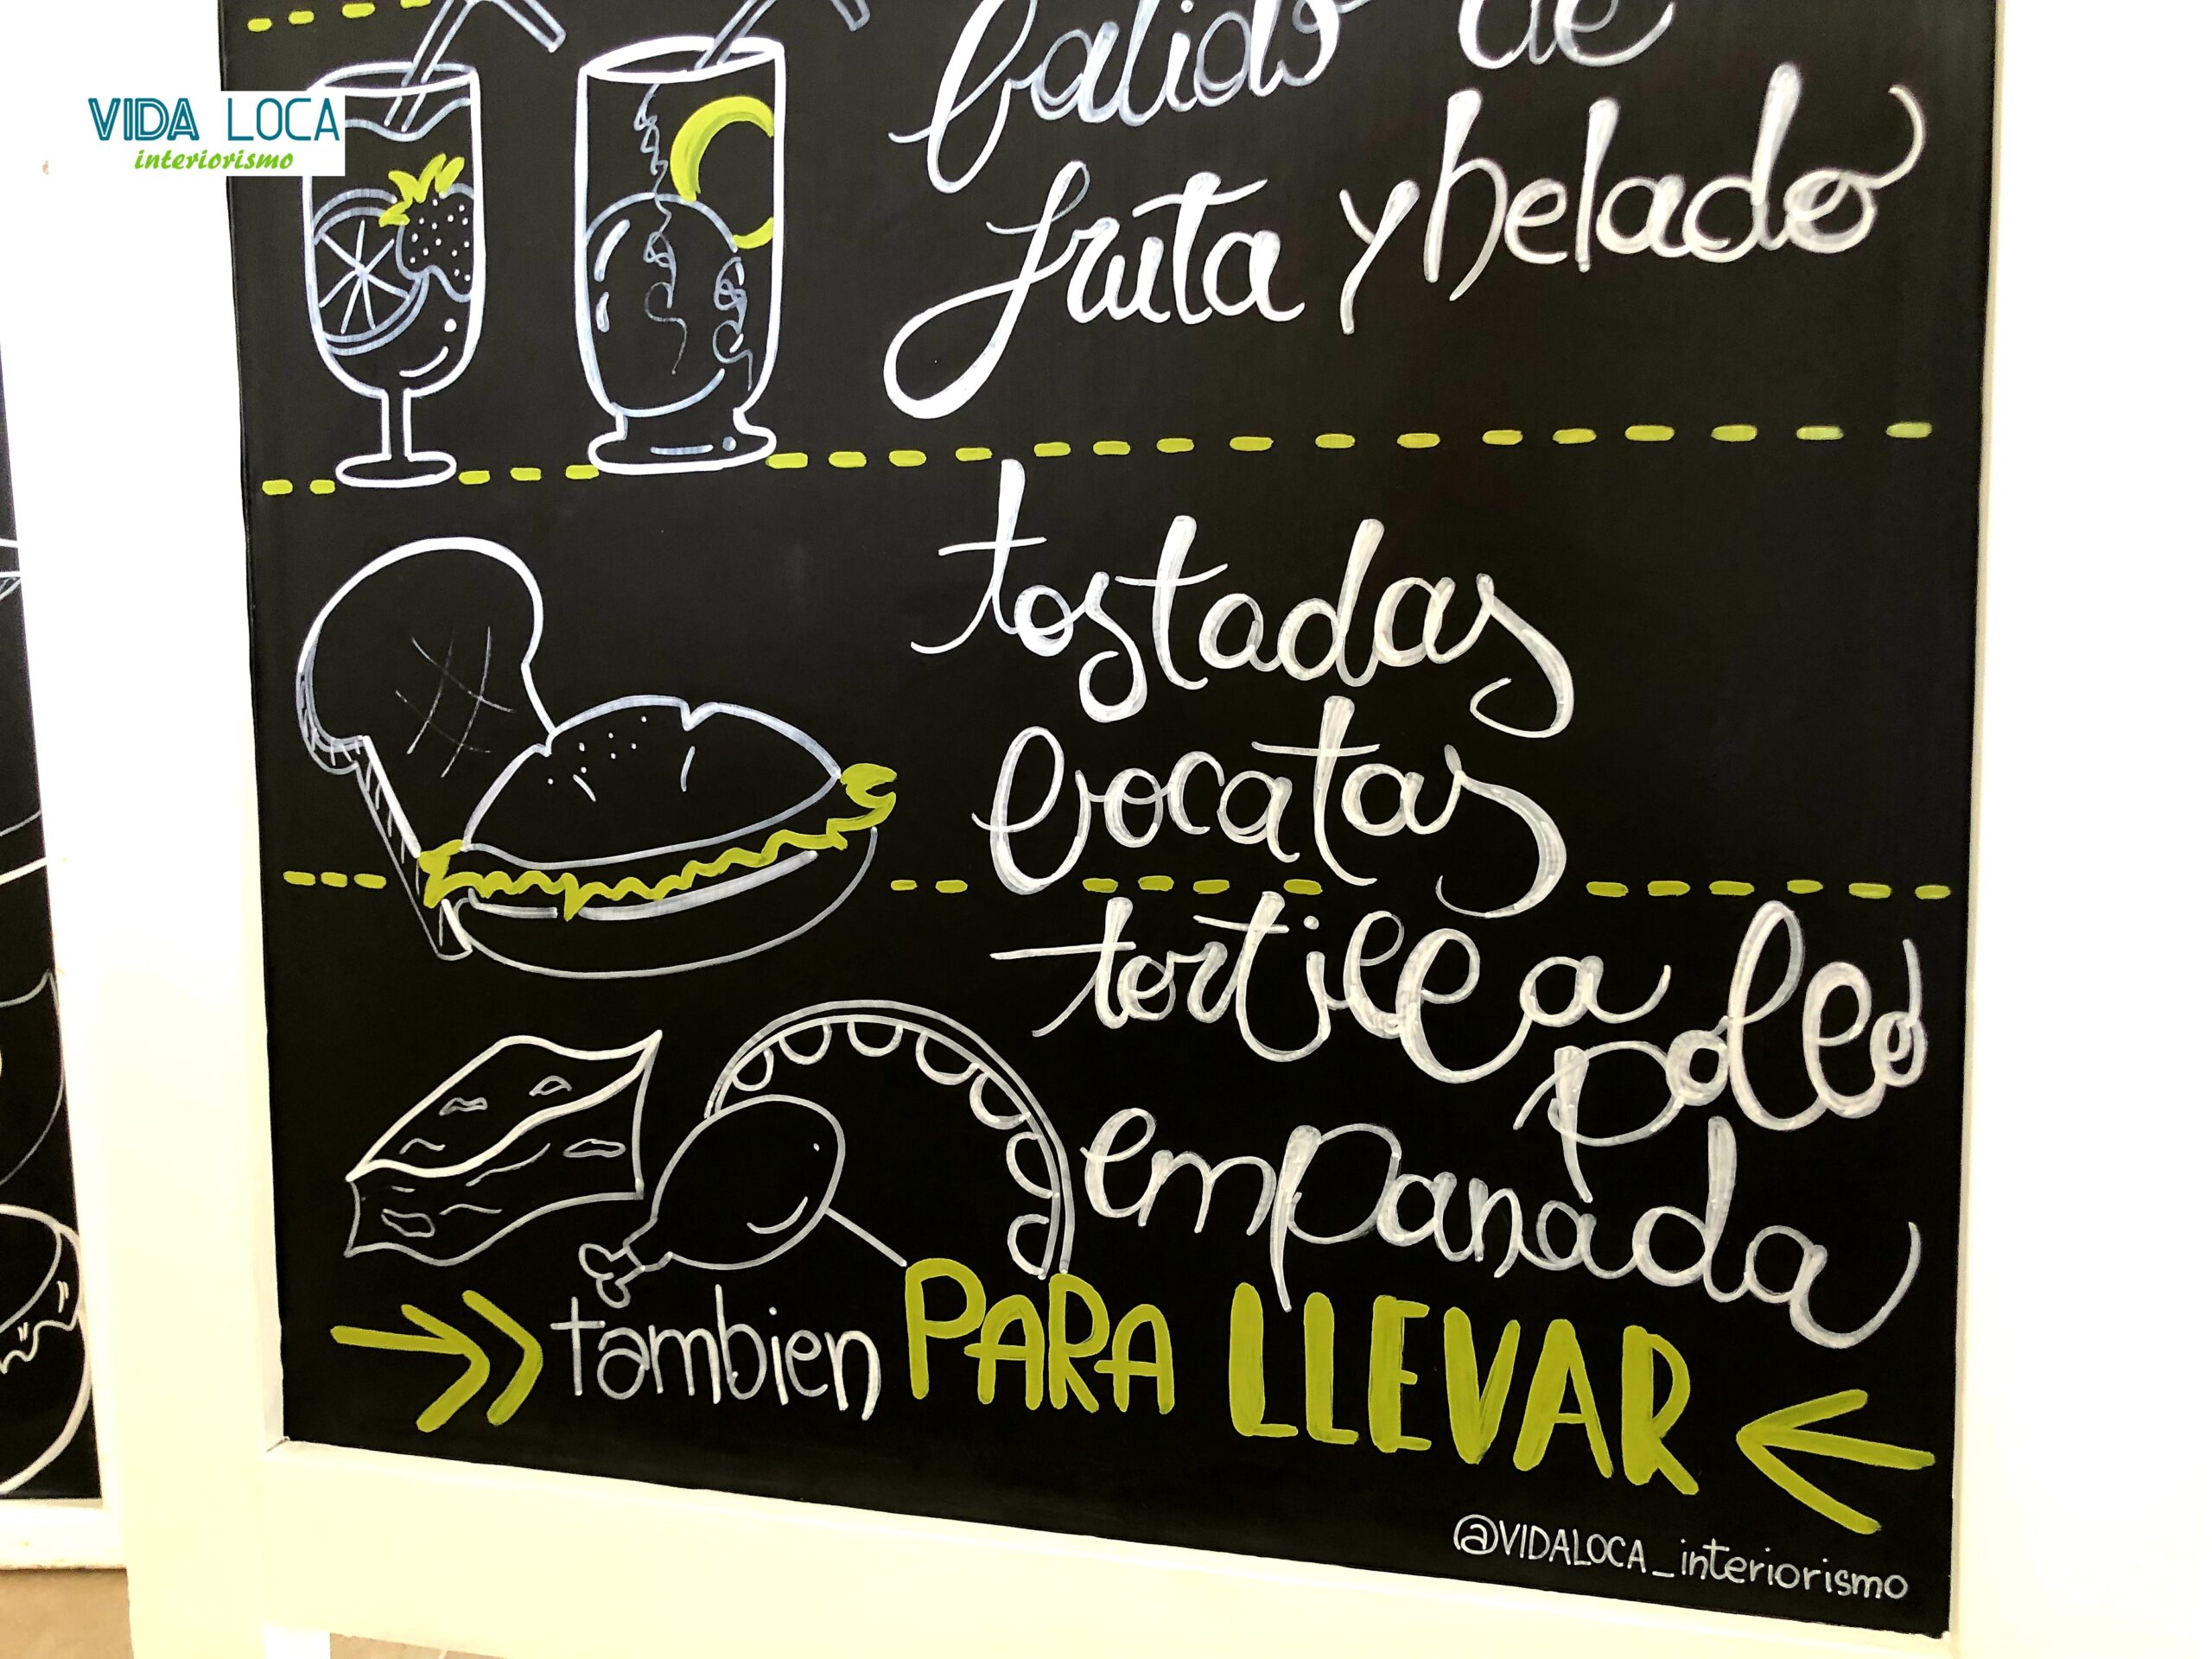 VIDA LOCA
interiorismo
batido de
fruta y helado
tostadas
bocatas
tortilla
pollo
empanada
tambien PARA LLEVAR
@VIDALOCA_interiorismo